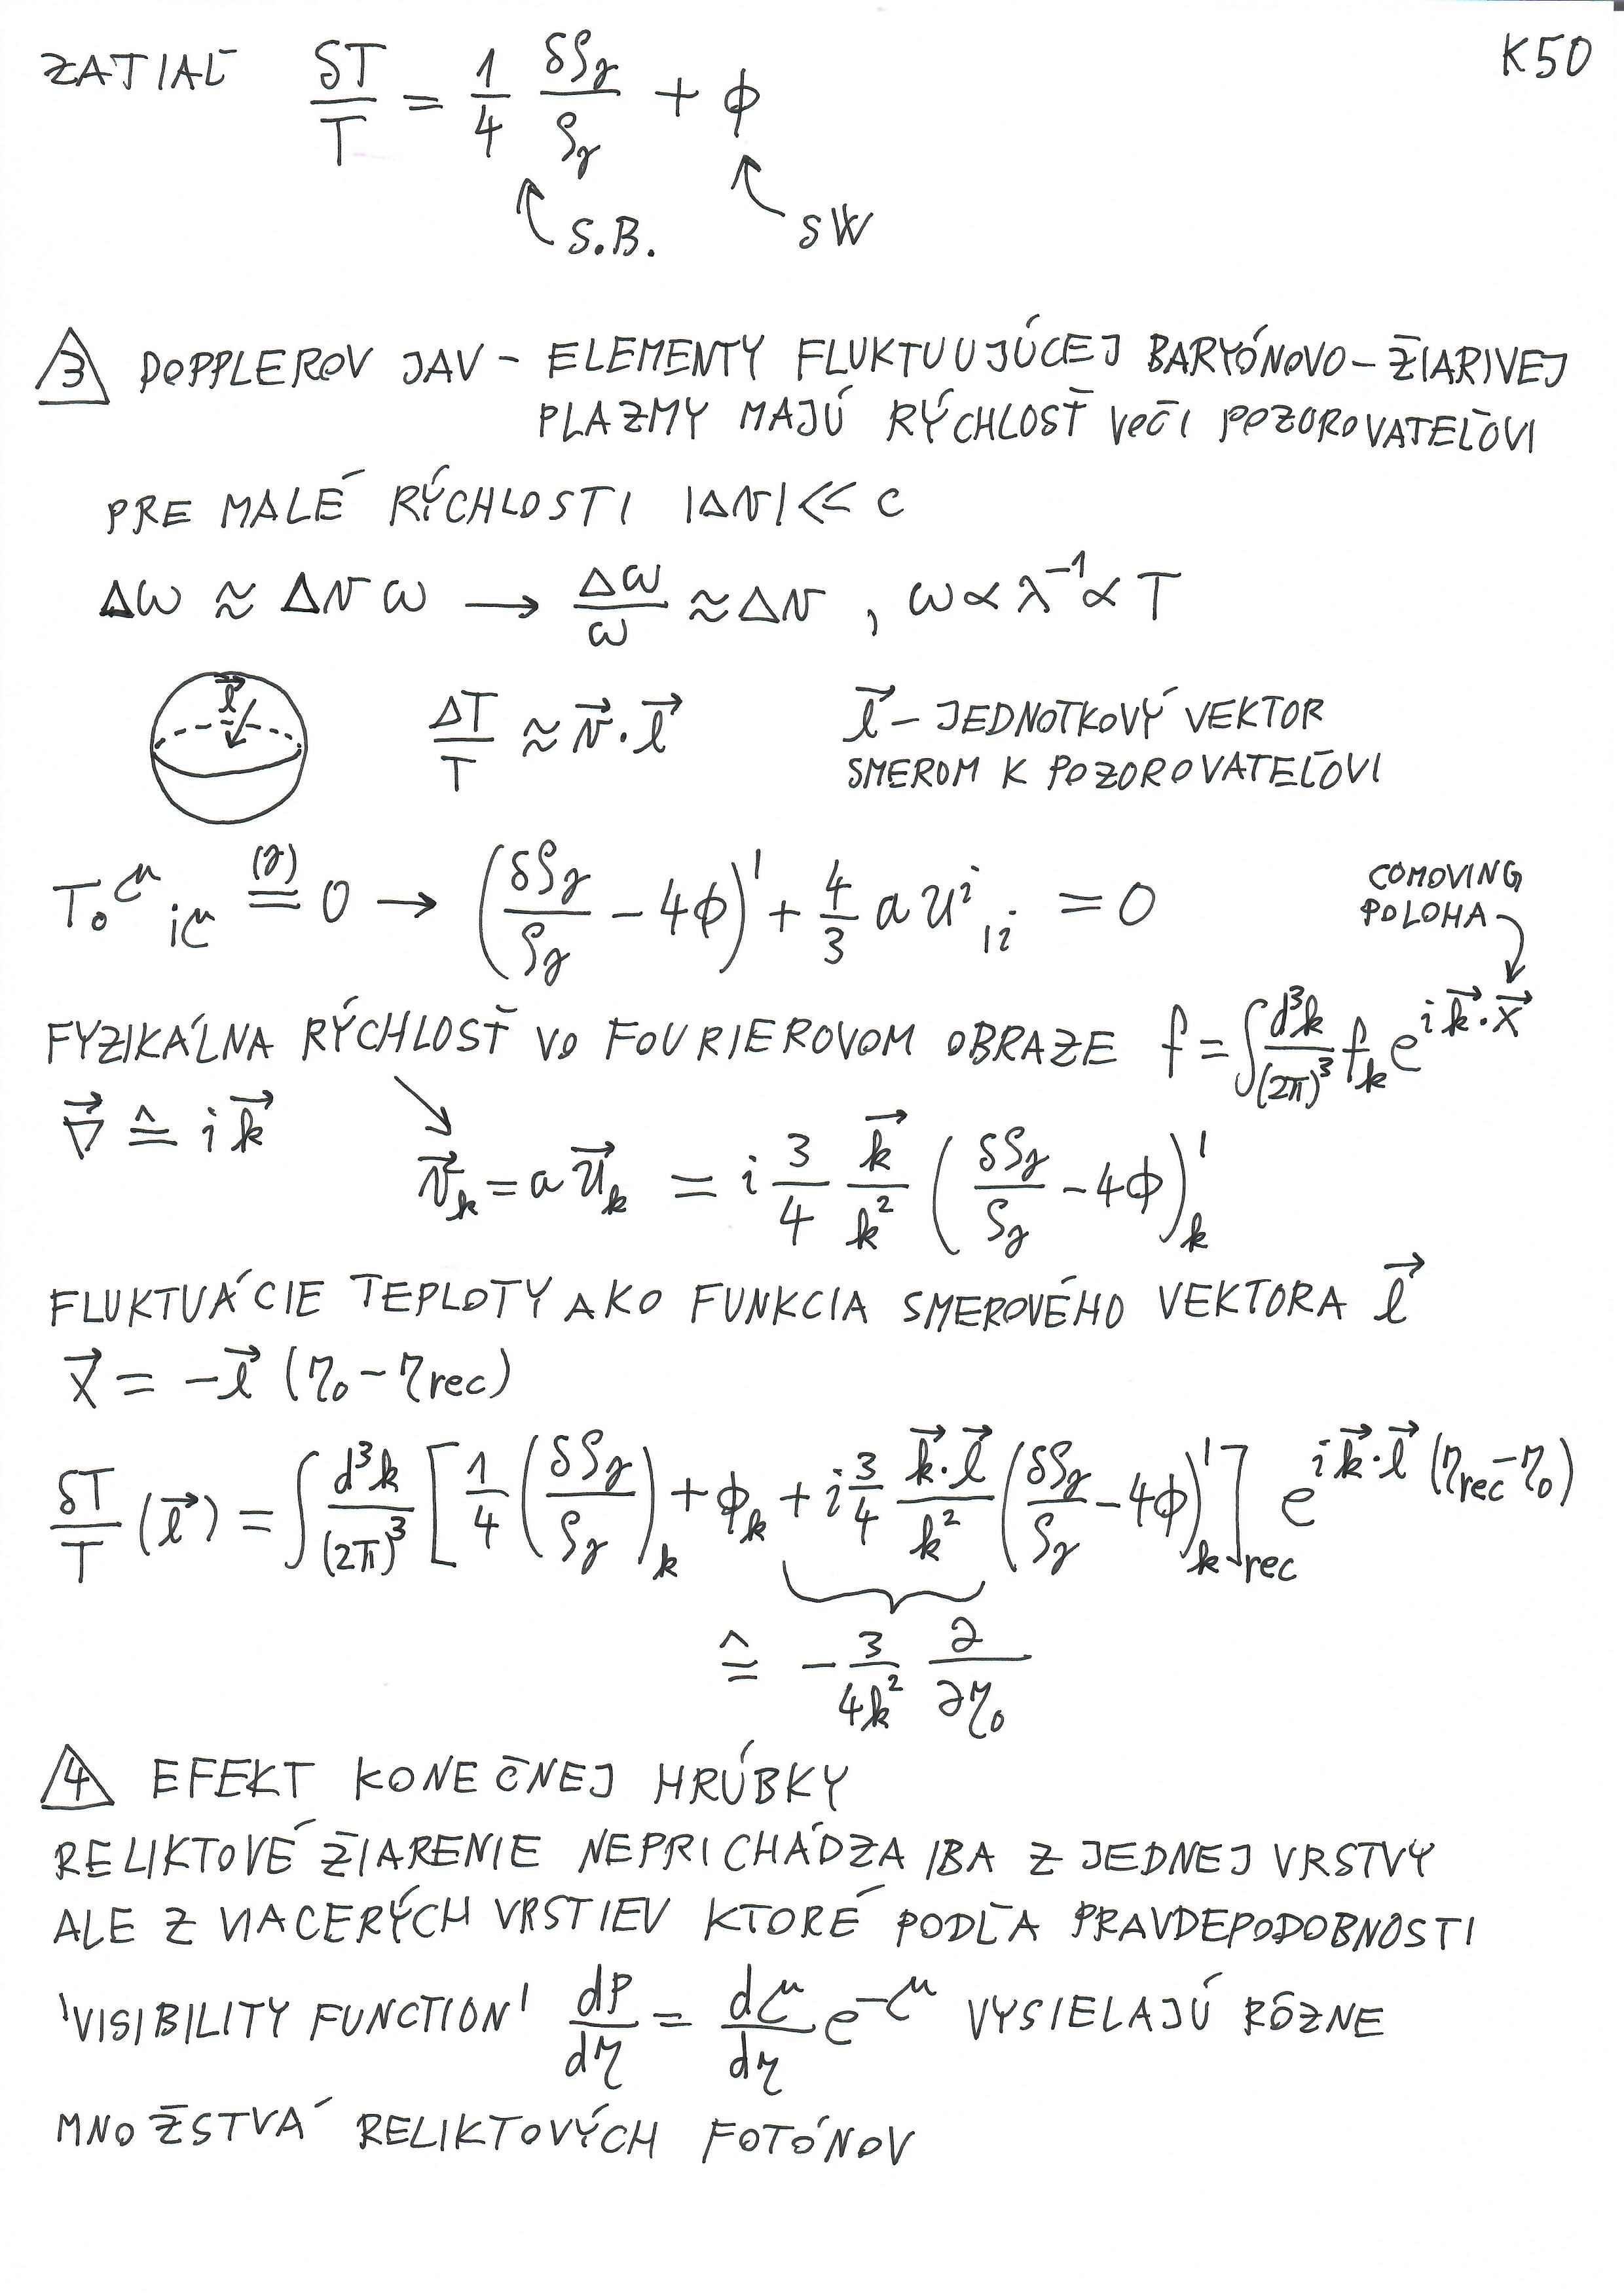 ZATIAĽ δT/T = 1/4 δρ_γ/ρ_γ + ϕ
K50
S.B.
SW
3 DOPPLEROV JAV – ELEMENTY FLUKTUUJÚCEJ BARYÓNOVO – ŽIARIVEJ
PLAZMY MAJÚ RÝCHLOSŤ VOČI POZOROVATEĽOVI
PRE MALÉ RÝCHLOSTI |Δv| << c
Δω ≈ Δv ω → Δω/ω ≈ Δv , ω ∝ λ⁻¹ ∝ T
l⃗
ΔT/T ≈ v⃗ · l⃗
l⃗ – JEDNOTKOVÝ VEKTOR
SMEROM K POZOROVATEĽOVI
T₀^μ_{;μ} =^(γ) 0 → (δρ_γ/ρ_γ – 4ϕ)' + 4/3 a u^i_{,i} = 0
COMOVING
POLOHA
FYZIKÁLNA RÝCHLOSŤ VO FOURIEROVOM OBRAZE f = ∫ d³k/(2π)³ f_k e^{i k⃗·x⃗}
∇⃗ ≙ i k⃗
v⃗_k = a u⃗_k = i 3/4 k⃗/k² (δρ_γ/ρ_γ – 4ϕ)'_k
FLUKTUÁCIE TEPLOTY AKO FUNKCIA SMEROVÉHO VEKTORA l⃗
x⃗ = –l⃗ (η₀ – η_rec)
δT/T (l⃗) = ∫ d³k/(2π)³ [1/4 (δρ_γ/ρ_γ)_k + ϕ_k + i 3/4 k⃗·l⃗/k² (δρ_γ/ρ_γ – 4ϕ)'_k]_rec e^{i k⃗·l⃗ (η_rec – η₀)}
≙ – 3/4k² ∂/∂η₀
4 EFEKT KONEČNEJ HRÚBKY
RELIKTOVÉ ŽIARENIE NEPRICHÁDZA IBA Z JEDNEJ VRSTVY
ALE Z VIACERÝCH VRSTIEV KTORÉ PODĽA PRAVDEPODOBNOSTI
'VISIBILITY FUNCTION' dP/dη = dμ/dη e^{–μ} VYSIELAJÚ RÔZNE
MNOŽSTVÁ RELIKTOVÝCH FOTÓNOV